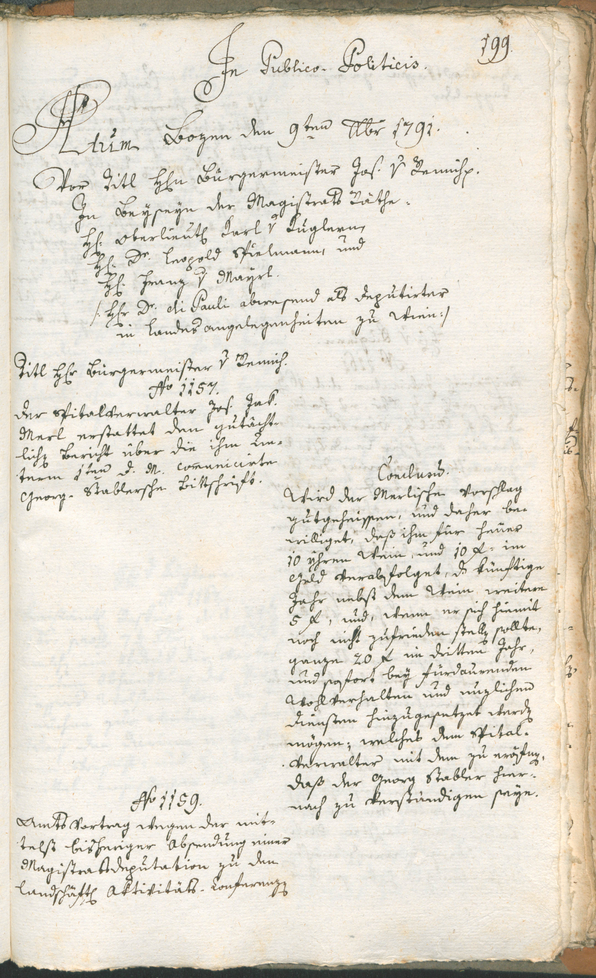 199.
In Publico-Politicis.
Actum Bozen den 9ten 9br 1791.
Vor Titl Hhn Bürgermeister Jos. v Remich.
In Beyseyn der Magistrats Räthe.
Hh. Oberlieuth Karl v Zuglern,
Hh. Dr. Leopold Spielmann, und
Hh. Franz v Mayrl.
/: Hhr Dr. di Pauli abwesend als deputirter
in Landesangelegenheiten zu Wien :/
Titl Hhr Bürgermeister v Remich.
No 1157.
Der Spitalverwalter Jos. Jak.
Merl erstattet den gutächt-
lichen Bericht über die ihm un-
term 1ten d. M. com̄unicirte
Georg-Stablersche Bittschrift.
Conclusum.
Wird der Merlische Vorschlag
gutgeheissen, und daher be-
williget, daß ihm für heuer
10 Yhren Wein, und 10 f. im
Geld verabfolget, d künftige
Jahr nebst dem Wein weitere
5 f, und, wenn er sich hiemit
noch nicht zufrieden stellen sollte,
ganze 20 f im dritten Jahr,
und sofort bey fürdaurenden
Wohlverhalten und nuzlichen
Diensten hinzugesetzet werden
mögen; welches dem Spital-
verwalter mit dem zu eröfnen,
daß der Georg Stabler hier-
nach zu verständigen seye.
No 1159.
Amtsvortrag wegen der mit-
telst bisheriger Absendung einer
Magistratsdeputation zu den
landschäftl Aktivitäts-Conferenz